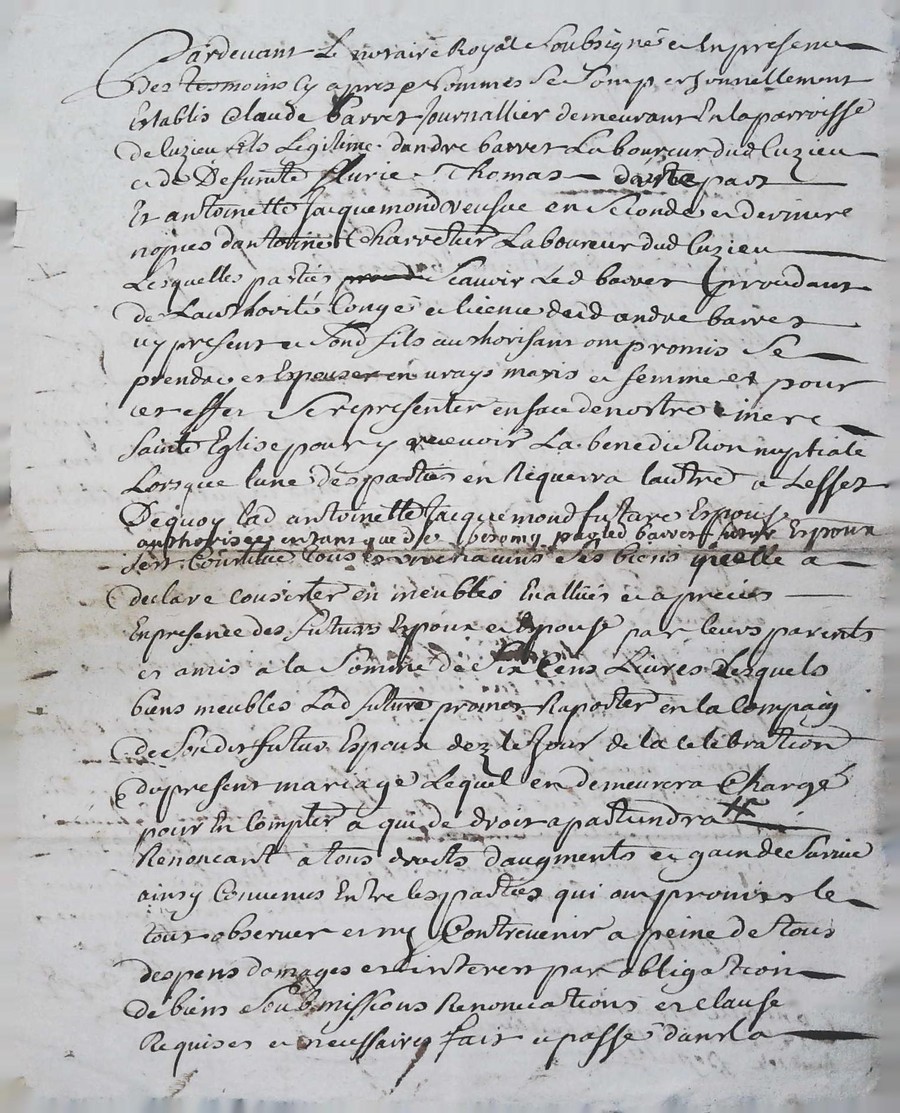 Pardevant Le notaire Royal Soubsigné et En presence
des tesmoins Cy apres Nommes Se Sont personnellement
Establis Claude barret Journallier demeurant En la parroisse
de luzieu fils Legitime dandre barret Laboureur dud luzieu
et de Deffunte flurie Thomas dune part
Et antoinette Jacquemond veufve en Secondes et derniere
nopces dantoine Charretier Laboureur dud luzieu
Lesquelles parties Scavoir Led barret procedant
de Lauthorité Congé et licence dud andre barret
icy present et Sond fils authorisant ont promis Se
prendre et Espouser en vrays maris et femme et pour
cet effet Se representer en face de nostre mere
Sainte Eglise pour y recevoir La benediction nuptiale
Lorsque lune des parties en Requerra lautre a Leffet
Dequoy lad antoinette Jacquemond future Espouse
authorisee en tant que de par led barret futur Espoux
Sest Constitue tous et ses biens quelle a
declare consister en meubles Evallués et apreciés
En presence des futurs Espoux et Espouse par leurs parents
et amis a la Somme de Six Cens Livres Lesquels
biens meubles Lad future promet Raporter en la Compagy
de Sondit futur Espoux dez le Jour de la celebration
du present mariage Lequel en demeurera Chargé
pour En Compter a qui de droit apartiendra
Renoncant a tous droits daugments et gain de Survie
ainsy Convenus Entre les parties qui ont promis le
tout observer et ny Contrevenir a peine de tous
despens domages et interets par obligation
de biens Soubmissions Renonciations et clause
Requises et necessaires fait et passé dans la